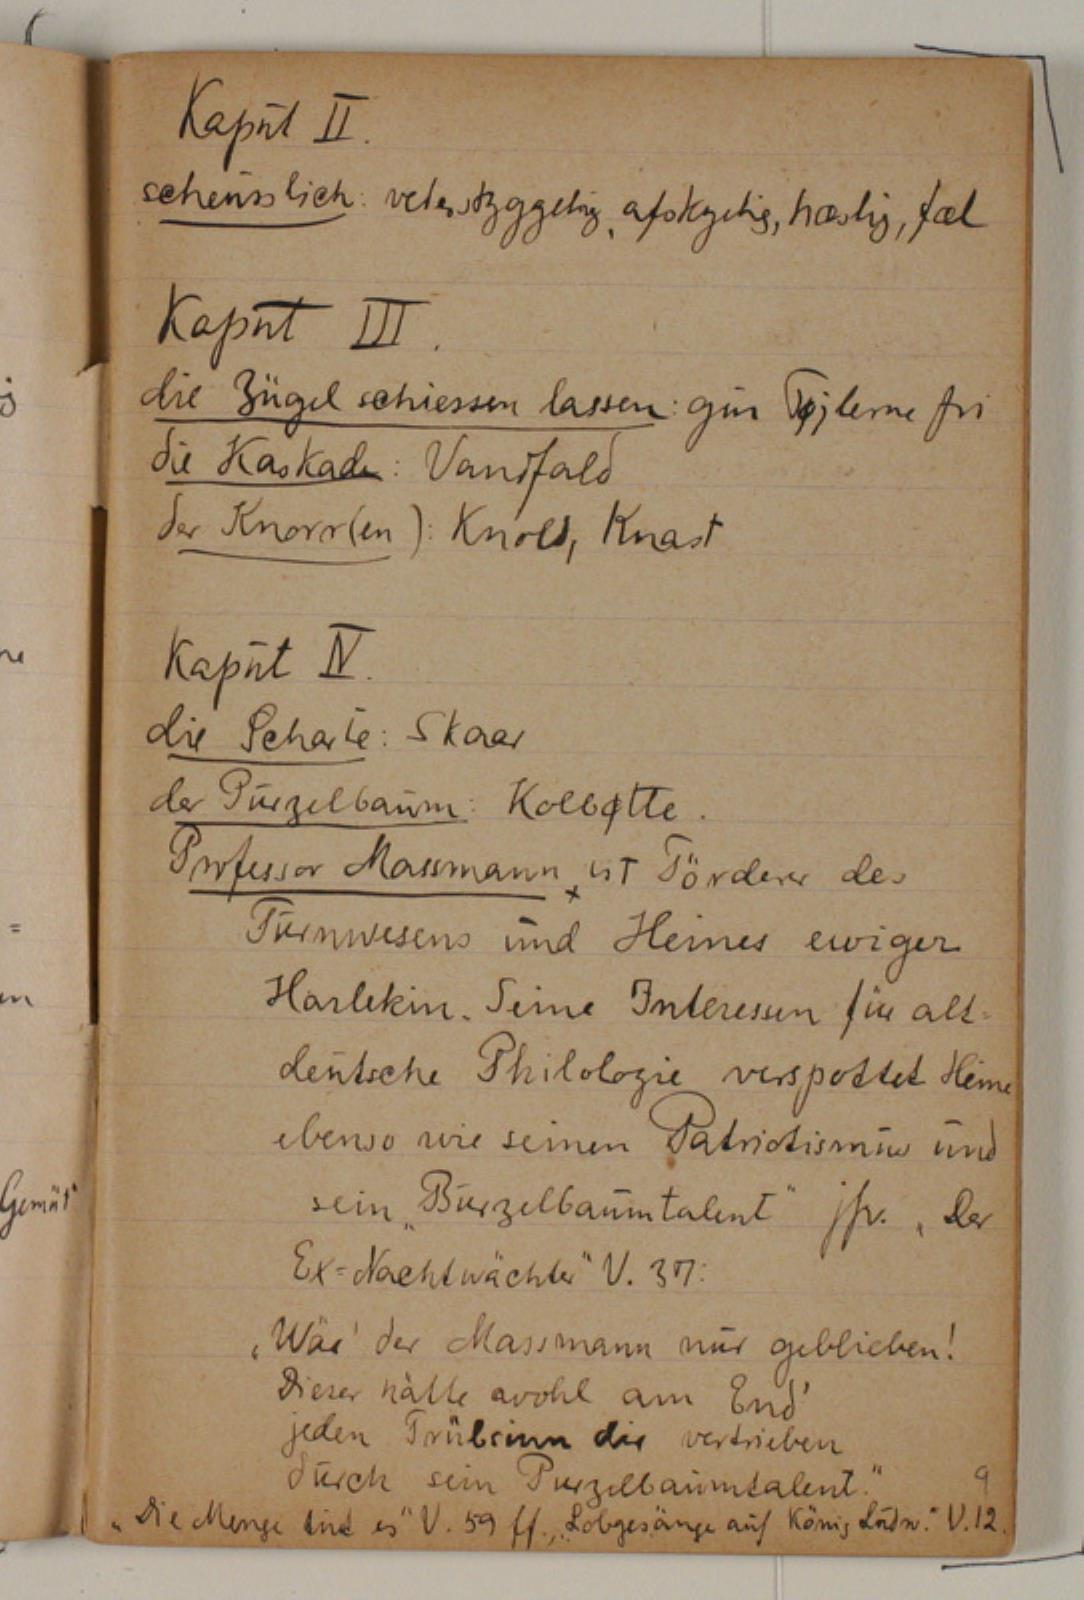 Kaput II.
scheusslich: vederstyggelig, afskyelig, hæslig, fæl
Kaput III.
die Zügel schiessen lassen: giv Tøjlerne fri
die Kaskade: Vandfald
der Knorr(en): Knold, Knast
Kaput IV.
die Scharte: Skaar
der Purzelbaum: Kolbøtte.
Professor Massmann x ist Förderer des
Turnwesens und Heines ewiger
Harlekin. Seine Interessen für alt-
deutsche Philologie verspottet Heine
ebenso wie seinen Patriotismus und
sein „Burzelbaumtalent" jfr. „Der
Ex-Nachtwächter" V. 37:
„Wär' der Massmann nur geblieben!
Dieser hätte wohl am End'
jeden Trübsinn dir vertrieben
durch sein Purzelbaumtalent."
9
„Die Menge tut es" V. 59 ff., „Lobgesänge auf König Ludw." V. 12.
ne
=
en
Gemüt"